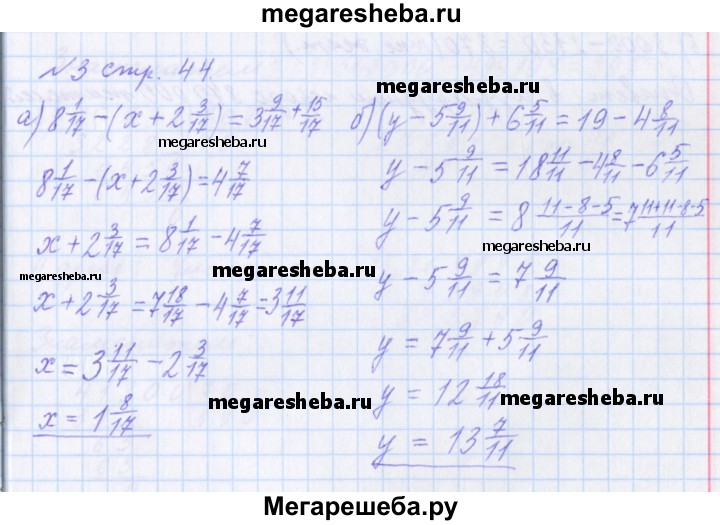 megaresheba.ru
№3 стр. 44.
а) 8 1/17 − (x + 2 3/17) = 3 9/17 + 15/17
megaresheba.ru
8 1/17 − (x + 2 3/17) = 4 7/17
x + 2 3/17 = 8 1/17 − 4 7/17
megaresheba.ru
megaresheba.ru
x + 2 3/17 = 7 18/17 − 4 7/17 = 3 11/17
x = 3 11/17 − 2 3/17
x = 1 8/17
megaresheba.ru
б) (y − 5 9/11) + 6 5/11 = 19 − 4 8/11
megaresheba.ru
y − 5 9/11 = 18 11/11 − 4 8/11 − 6 5/11
y − 5 9/11 = 8 (11−8−5)/11 = 7 (11+11−8−5)/11
megaresheba.ru
y − 5 9/11 = 7 9/11
y = 7 9/11 + 5 9/11
y = 12 18/11
megaresheba.ru
y = 13 7/11
Мегарешеба.ру